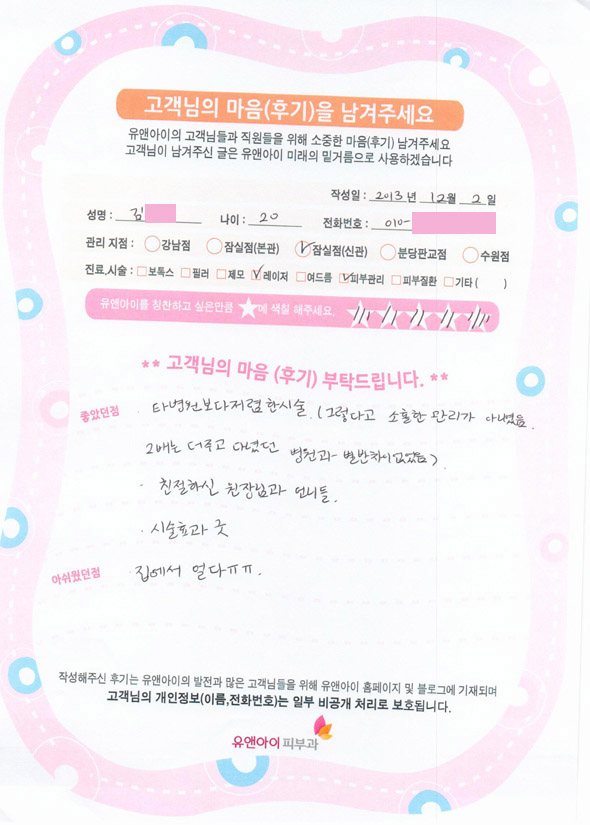 고객님의 마음(후기)을 남겨주세요
유앤아이의 고객님들과 직원들을 위해 소중한 마음(후기) 남겨주세요
고객님이 남겨주신 글은 유앤아이 미래의 밑거름으로 사용하겠습니다
작성일 : 2013 년 12월 2 일
성명 : 김 나이 : 20 전화번호 : 010-
관리 지점 : 강남점 잠실점(본관) 잠실점(신관) 분당판교점 수원점
진료,시술 : 보톡스 필러 제모 레이저 여드름 피부관리 피부질환 기타 ( )
유앤아이를 칭찬하고 싶은만큼 ★에 색칠 해주세요.
** 고객님의 마음 (후기) 부탁드립니다. **
좋았던점 · 타병원보다저렴한시술. (그렇다고 소홀한 관리가 아녔음.
2배는 더주고 다녔던 병원과 별반차이없었음).
· 친절하신 원장님과 언니들.
· 시술효과 굿
아쉬웠던점 · 집에서 멀다ㅠㅠ.
작성해주신 후기는 유앤아이의 발전과 많은 고객님들을 위해 유앤아이 홈페이지 및 블로그에 기재되며
고객님의 개인정보(이름,전화번호)는 일부 비공개 처리로 보호됩니다.
유앤아이 피부과